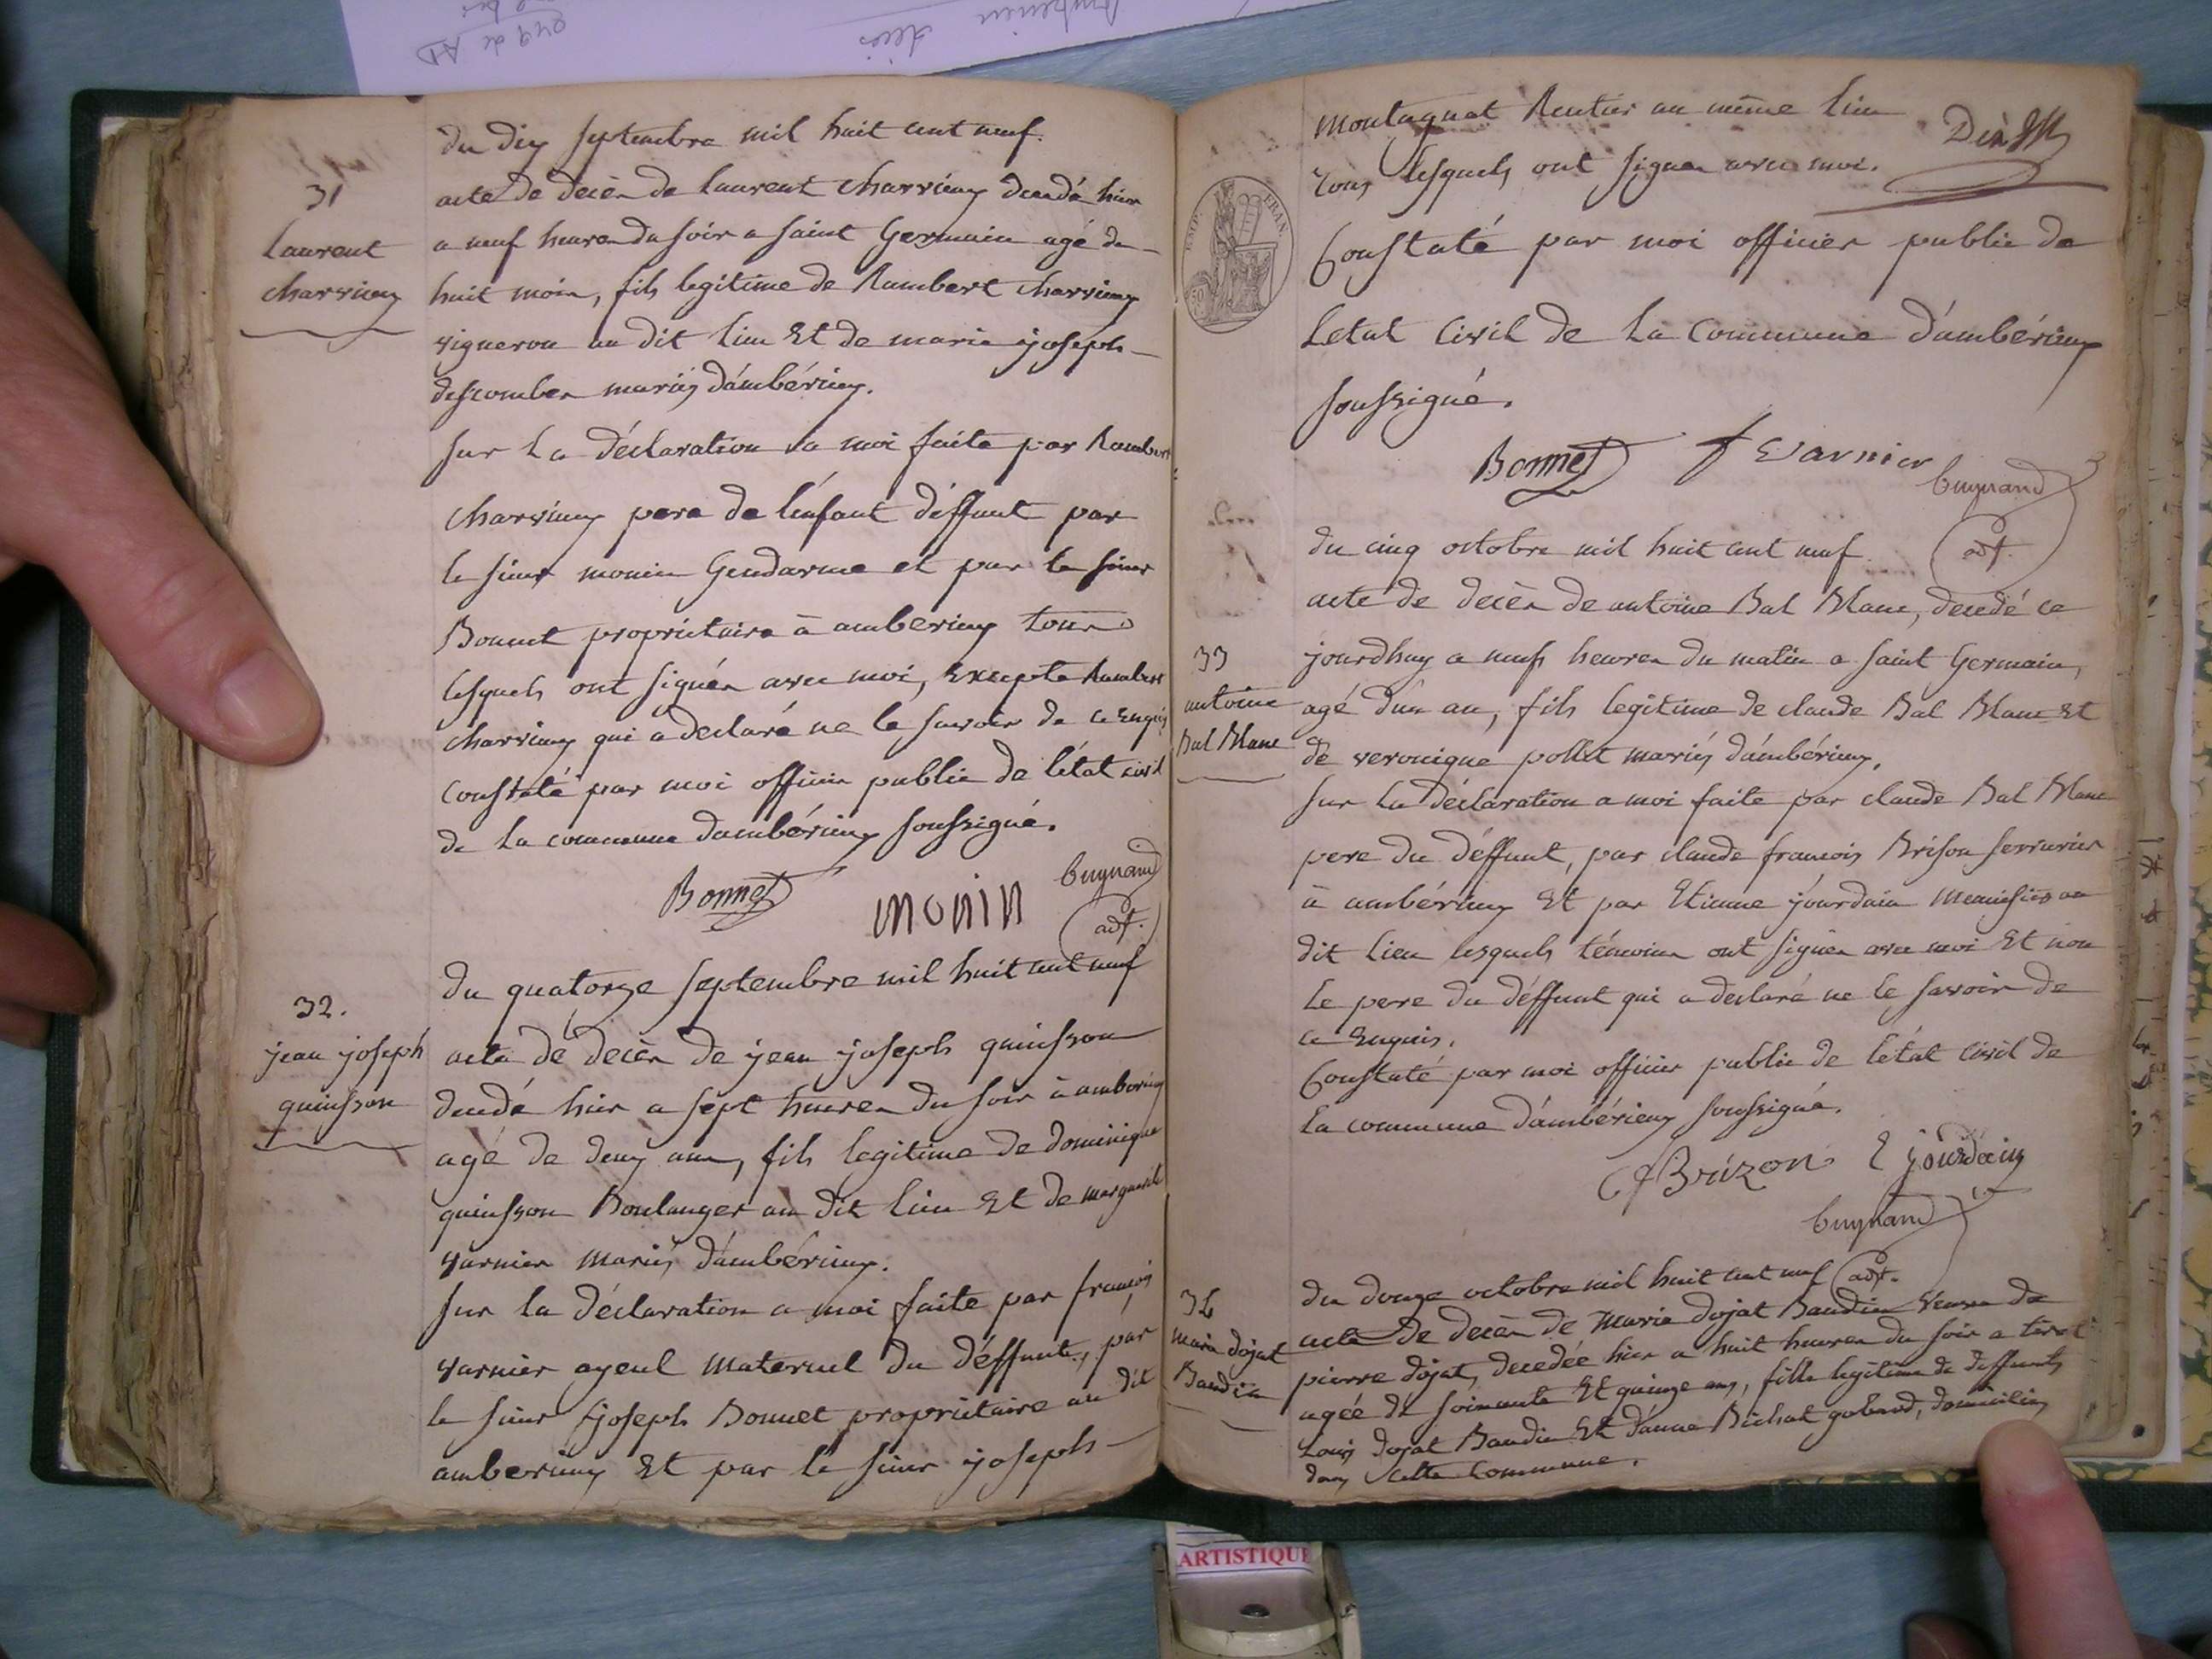 du dix septembre mil huit cent neuf.
31
laurent
charvieux
acte de decès de laurent charvieux decedé hier
a neuf heures du soir a saint Germain agé de
huit mois, fils legitime de Rambert charvieux
vigneron au dit lieu Et de marie joseph
descombes mariés d'ambérieux.
sur La déclaration a moi faite par Rambert
charvieux pere de l'enfant déffunt par
le sieur monin Gendarme et par le sieur
Bonnet propriétaire à amberieux tous
lesquels ont signés avec moi, Excepté Rambert
charvieux qui a declaré ne le savoir de ce Enquis
constaté par moi officier public de l'état civil
de La commune d'ambérieux soussigné.
Bonnet monin Cugnard
adt.
32.
jean joseph
quinsson
du quatorze septembre mil huit cent neuf
acte de decès de jean joseph quinsson
decedé hier a sept heures du soir à amberieux
agé de deux ans, fils legitime de dominique
quinsson Boulanger au dit lieu Et de marguerite
varnier mariés d'ambérieux.
sur la déclaration a moi faite par françois
varnier ayeul maternel du déffunt, par
le sieur joseph Bonnet propriétaire au dit
amberieux Et par le sieur joseph
montagnat Rentier au même lieu
tous lesquels ont signés avec moi.
EMP. FRAN.
50
Constaté par moi officier public de
Letat Civil de La Commune d'ambérieux
soussigné.
Bonnet f varnier Cugnard
adt.
du cinq octobre mil huit cent neuf
33
antoine
Bal Blanc
acte de decès de antoine Bal Blanc, decedé ce
jourdhuy a neuf heures du matin a saint Germain,
agé d'un an, fils legitime de claude Bal Blanc Et
de veronique pollet mariés d'ambérieux.
sur La déclaration a moi faite par claude Bal Blanc
pere du déffunt, par claude françois Brison serrurier
à ambérieux Et par Etienne jourdain menuisier au
dit Lieu lesquels témoins ont signés avec moi Et non
Le pere du déffunt qui a declaré ne le savoir de
ce Enquis.
Constaté par moi officier public de l'état civil de
La commune d'ambérieux soussigné.
cf Brizon E jourdain
Cugnard
adt.
34
marie dojat
Baudin
du douze octobre mil huit cent neuf
acte de decès de Marie dojat Baudin veuve de
pierre dojat, decedée hier a huit heures du soir a tiret
agée de soixante Et quinze ans, fille legitime de deffunts
Louis dojat Baudin Et d'anne Bichat gobard, domiciliés
dans cette Commune.
ARTISTIQUE